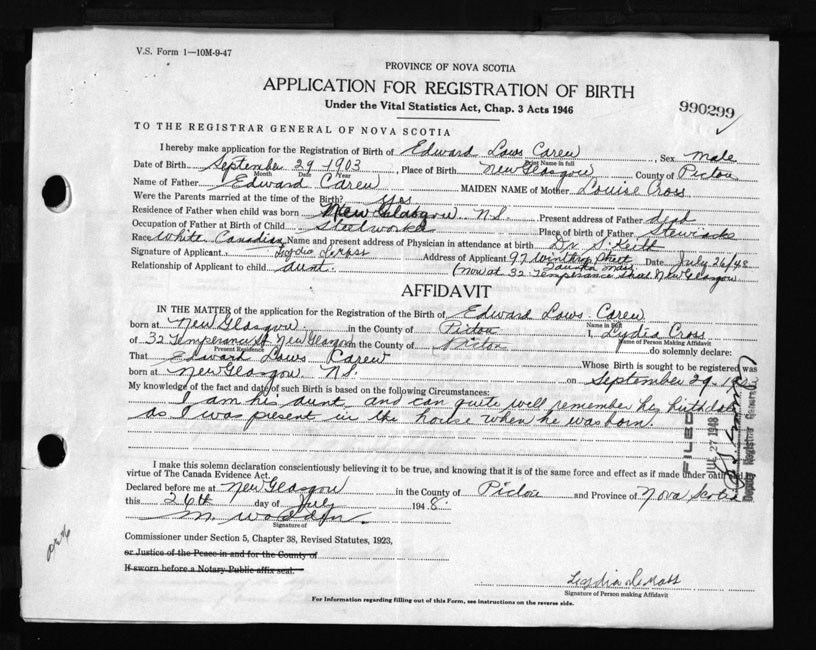 V.S. Form 1—10M-9-47
PROVINCE OF NOVA SCOTIA
APPLICATION FOR REGISTRATION OF BIRTH
Under the Vital Statistics Act, Chap. 3 Acts 1946
990299
TO THE REGISTRAR GENERAL OF NOVA SCOTIA
I hereby make application for the Registration of Birth of Edward Laws Carew, Sex Male
Print Name in full
Date of Birth September 29 1903, Place of Birth New Glasgow County of Pictou
Month Date Year
Name of Father Edward Carew MAIDEN NAME of Mother Louise Cross
Were the Parents married at the time of the Birth? Yes
Residence of Father when child was born New Glasgow N.S. Present address of Father dead
Occupation of Father at Birth of Child Steelworker Place of birth of Father Stewiacke
Race White Canadian Name and present address of Physician in attendance at birth Dr S. Keith
Signature of Applicant Lydia Address of Applicant 97 Winthrop Street Date July 26/48
Relationship of Applicant to child aunt. (now at 32 Temperance Street New Glasgow
AFFIDAVIT
IN THE MATTER of the application for the Registration of Birth of Edward Laws Carew
Name in full
born at New Glasgow in the County of Pictou I, Lydia Cross
Name of Person Making Affidavit
of 32 Temperance St New Glasgow in the County of Pictou do solemnly declare:
Present Residence
That Edward Laws Carew Whose Birth is sought to be registered was
born at New Glasgow N.S. on September 29 1903
My knowledge of the fact and date of such Birth is based on the following Circumstances:
I am his aunt and can quite well remember his birthdate
as I was present in the house when he was born.
FILED
JUL 27 1948
Deputy Registrar General
I make this solemn declaration conscientiously believing it to be true, and knowing that it is of the same force and effect as if made under oath
virtue of The Canada Evidence Act.
Declared before me at New Glasgow in the County of Pictou and Province of Nova Scotia
this 26th day of July 1948.
Signature of
Commissioner under Section 5, Chapter 38, Revised Statutes, 1923,
or Justice of the Peace in and for the County of
If sworn before a Notary Public affix seal.
Lydia
Signature of Person making Affidavit
For Information regarding filling out of this Form, see instructions on the reverse side.